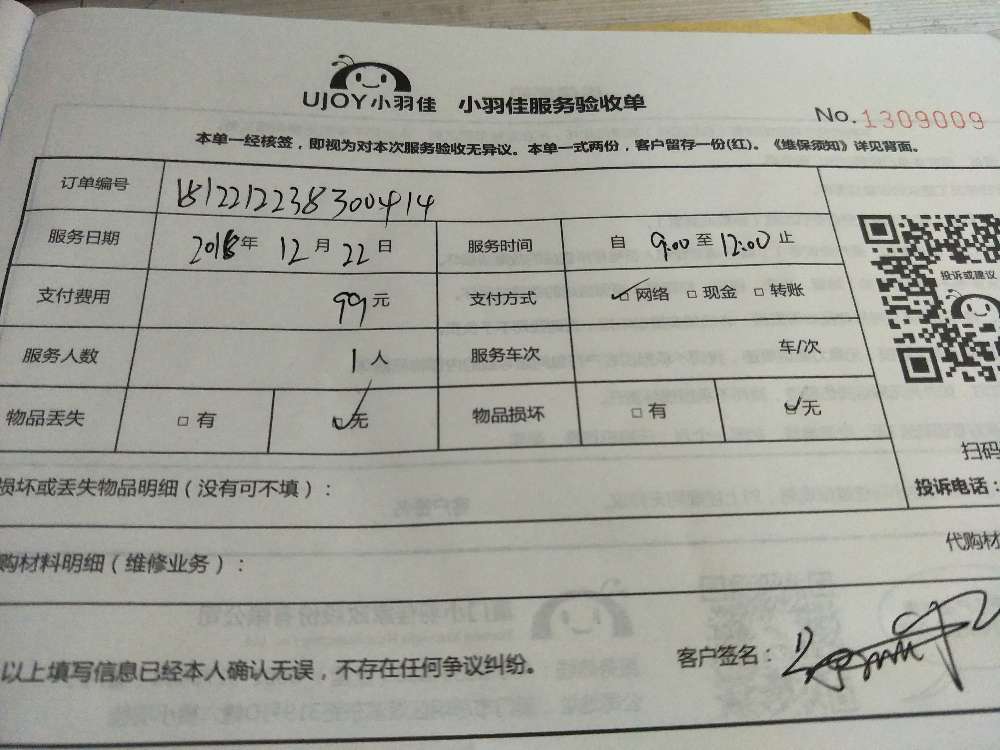 UJOY小羽佳 小羽佳服务验收单
No.1309009
本单一经核签，即视为对本次服务验收无异议。本单一式两份，客户留存一份(红)。《维保须知》详见背面。
订单编号 1812212238300414
服务日期 2018年 12月 22日 服务时间 自 9:00 至 12:00 止
投诉或建议
支付费用 99元 支付方式 ☑网络 □现金 □转账
服务人数 1人 服务车次 车/次
物品丢失 □有 ☑无 物品损坏 □有 ☑无
扫码
损坏或丢失物品明细（没有可不填）：
投诉电话：
购材料明细（维修业务）：
代购材
以上填写信息已经本人确认无误，不存在任何争议纠纷。 客户签名：